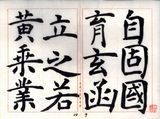 自固國
育玄函
立之若
黄乘業